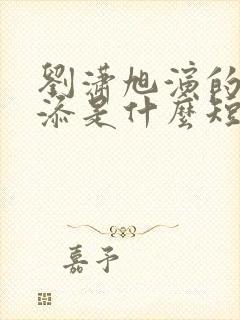 劉瀟旭演的
添是什麼短
嘉予